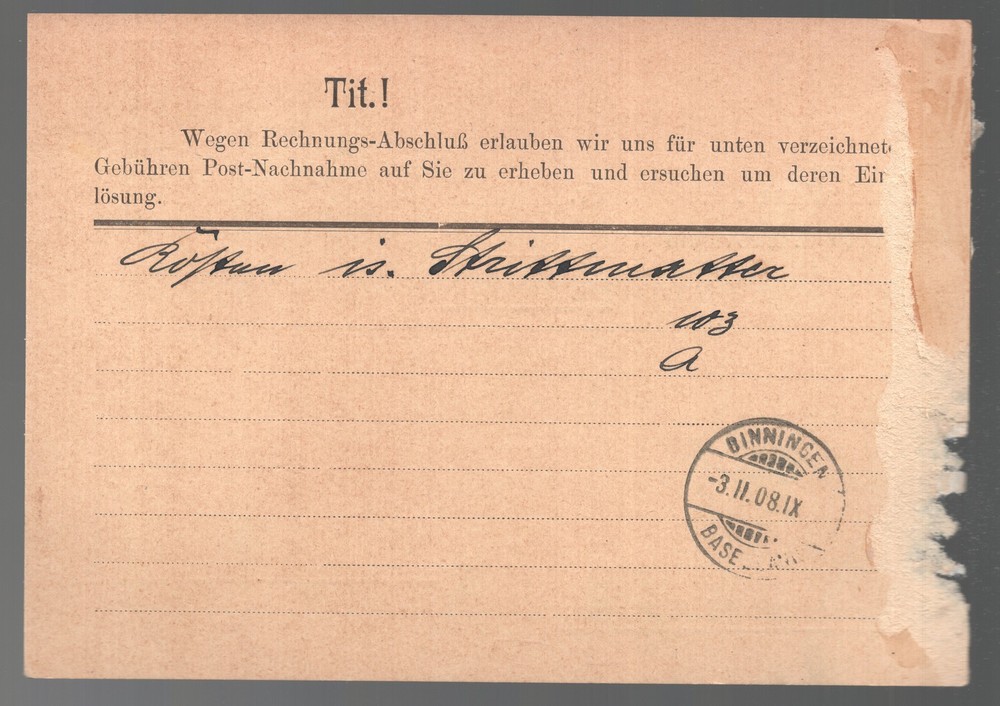 Tit.!
Wegen Rechnungs-Abschluß erlauben wir uns für unten verzeichnete
Gebühren Post-Nachnahme auf Sie zu erheben und ersuchen um deren Ein
lösung.
Kosten is. Strittmatter
103
A
BINNINGEN
-3.II.08.IX
BASE